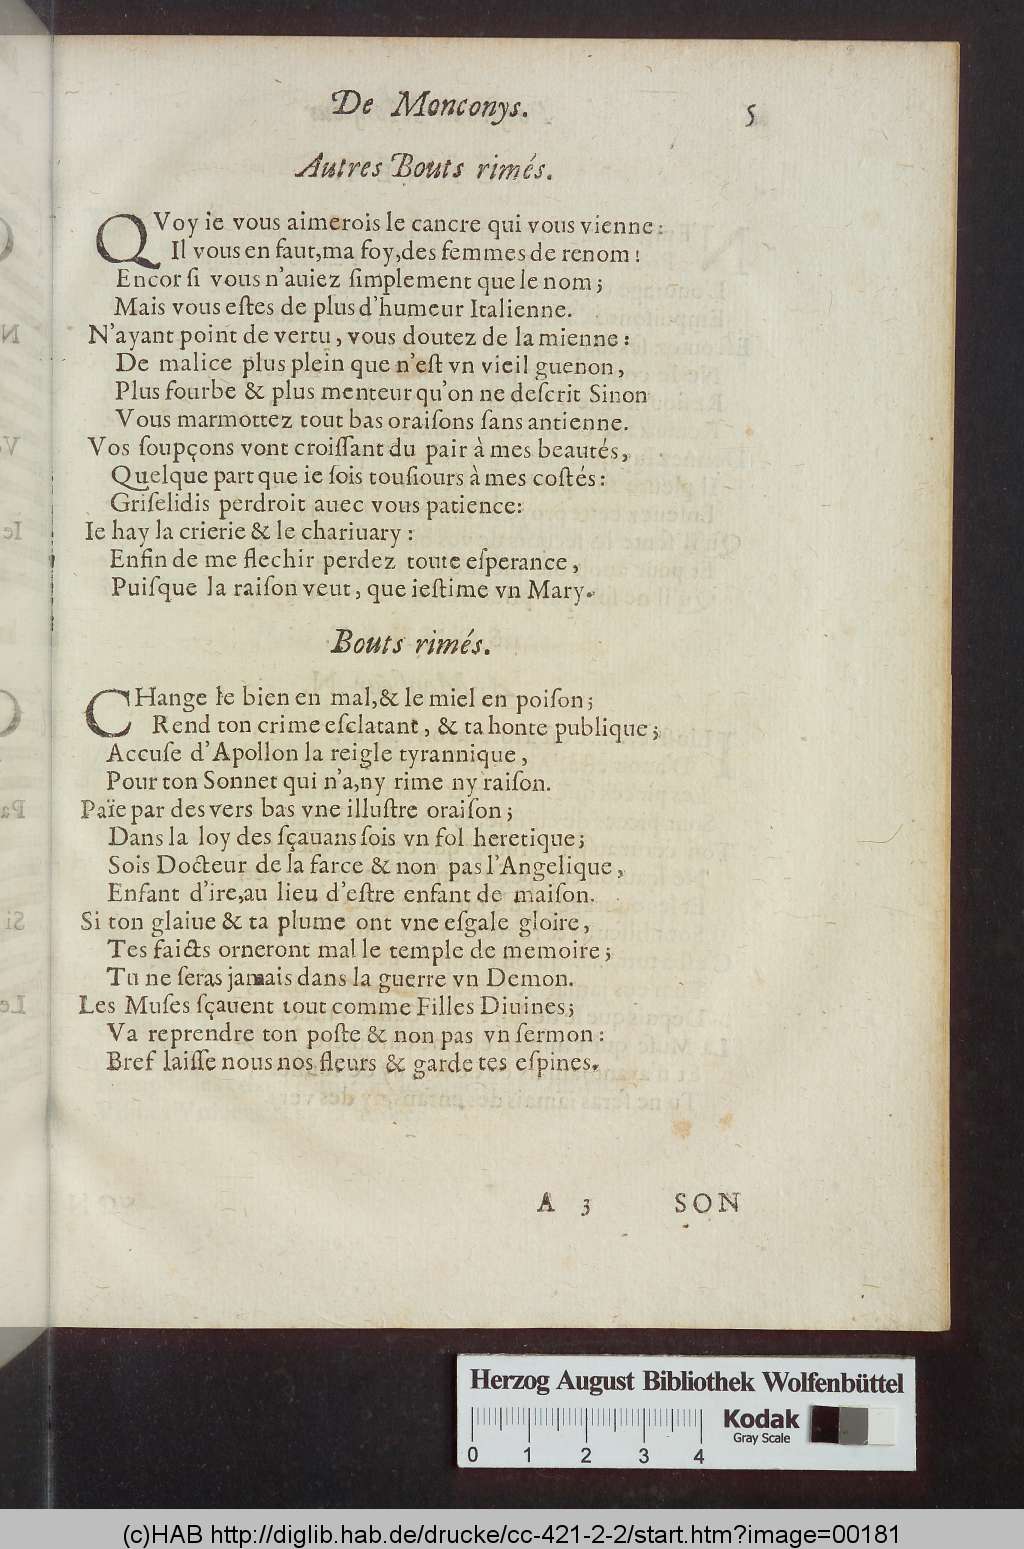 De Monconys. 5
Autres Bouts rimés.
QVoy ie vous aimerois le cancre qui vous vienne:
Il vous en faut,ma foy,des femmes de renom!
Encor ſi vous n'auiez ſimplement que le nom;
Mais vous eſtes de plus d'humeur Italienne.
N'ayant point de vertu, vous doutez de la mienne:
De malice plus plein que n'eſt vn vieil guenon,
Plus fourbe & plus menteur qu'on ne deſcrit Sinon
Vous marmottez tout bas oraiſons ſans antienne.
Vos ſoupçons vont croiſſant du pair à mes beautés,
Quelque part que ie ſois touſiours à mes coſtés:
Griſelidis perdroit auec vous patience:
Ie hay la crierie & le chariuary:
Enfin de me flechir perdez toute eſperance,
Puiſque la raiſon veut, que ieſtime vn Mary.
Bouts rimés.
CHange le bien en mal,& le miel en poiſon;
Rend ton crime eſclatant, & ta honte publique;
Accuſe d'Apollon la reigle tyrannique,
Pour ton Sonnet qui n'a,ny rime ny raiſon.
Païe par des vers bas vne illuſtre oraiſon;
Dans la loy des ſçauans ſois vn fol heretique;
Sois Docteur de la farce & non pas l'Angelique,
Enfant d'ire,au lieu d'eſtre enfant de maiſon.
Si ton glaiue & ta plume ont vne eſgale gloire,
Tes faicts orneront mal le temple de memoire;
Tu ne ſeras jamais dans la guerre vn Demon.
Les Muſes ſçauent tout comme Filles Diuines;
Va reprendre ton poſte & non pas vn ſermon:
Bref laiſſe nous nos fleurs & garde tes eſpines.
A 3 SON
Herzog August Bibliothek Wolfenbüttel
Kodak
Gray Scale
0 1 2 3 4
(c)HAB http://diglib.hab.de/drucke/cc-421-2-2/start.htm?image=00181